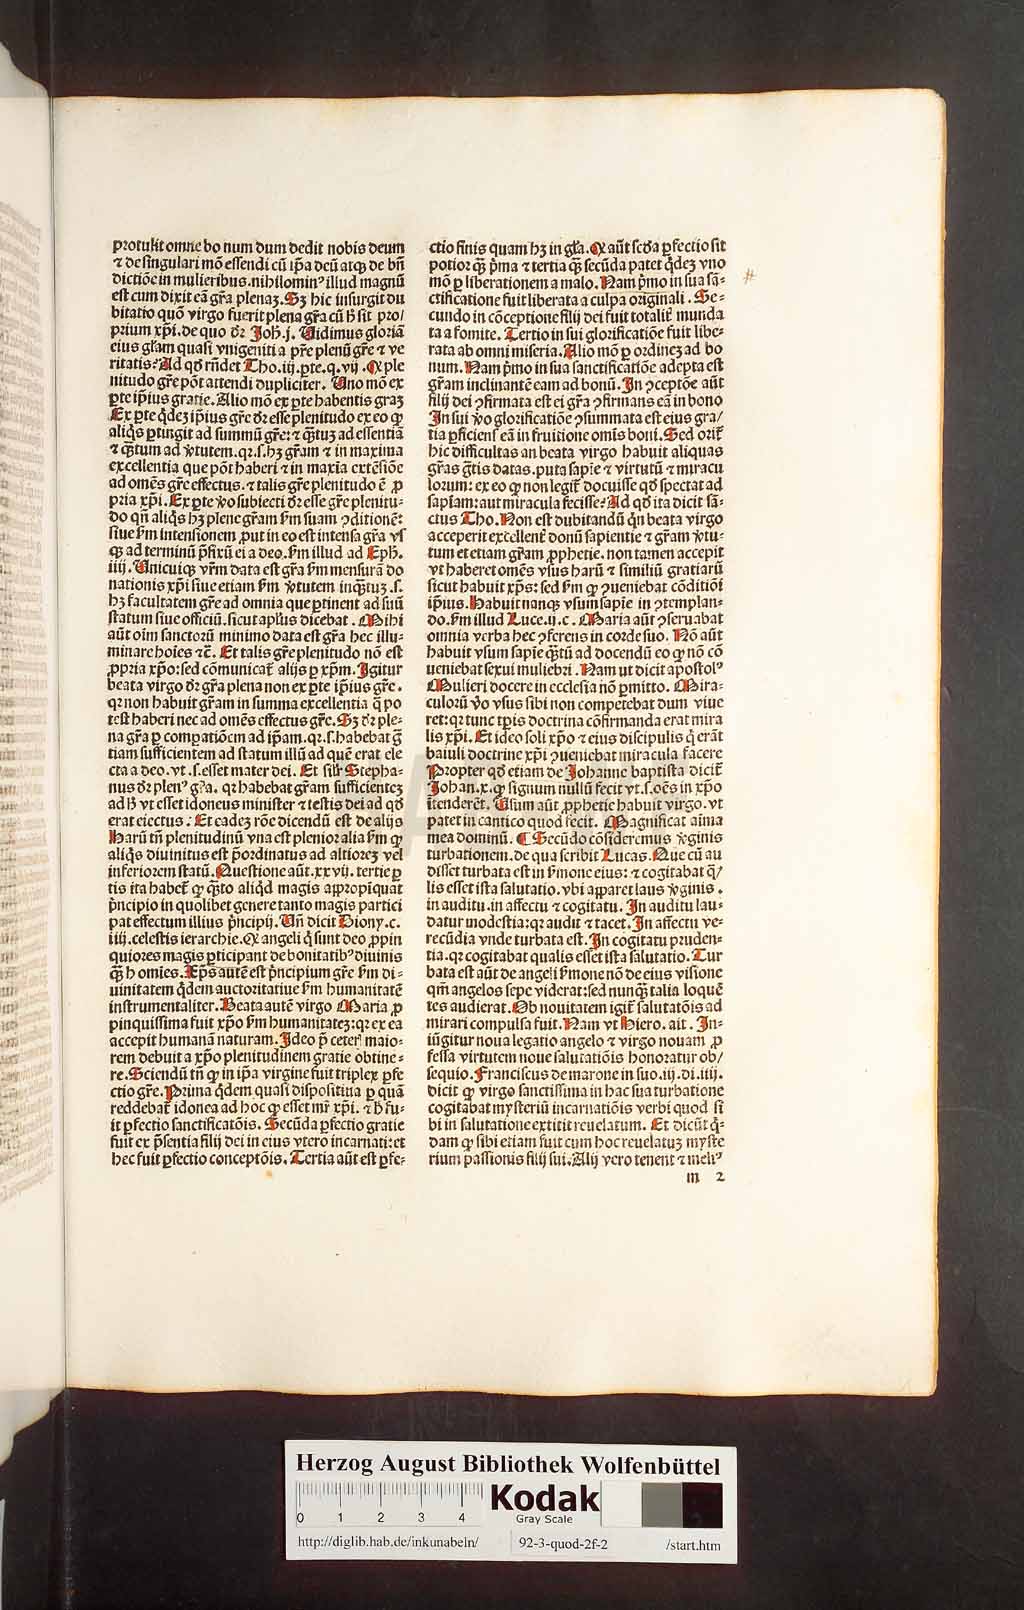 protulit omne bo num dum dedit nobis deum
⁊ de singulari mō essendi cū ip̄a deū atqꝫ de bn̄
dictiōe in mulieribus. nihilominꝰ illud magnū
est cum dixit eā gr̄a plenaꝫ. Sꝫ hic insurgit du
bitatio quō virgo fuerit plena gr̄a cū ħ sit pro/
prium xp̄i. de quo dr̄ Joh̄. j. Uidimus gloriā
eius gl̄am quasi vnigeniti a pr̄e plenū gr̄e ⁊ ve
ritatis? Ad qd̄ rn̄det Tho. iij. pte. q. vij. Q ple
nitudo gr̄e pōt attendi dupliciter. Uno mō ex
ꝑte ip̄ius gratie. Alio mō ex ꝑte habentis graꝫ
Ex ꝑte qͥdeꝫ ip̄ius gr̄e dr̄ esse plenitudo ex eo ꝙ
aliqͥs ꝑtingit ad summū gr̄e: ⁊ qᷓꝫtuꝫ ad essentiā
⁊ qᷓꝫtum ad v̓tutem. qꝛ. s. hꝫ gr̄am ⁊ in maxima
excellentia que pōt haberi ⁊ in maxīa extēsiōe
ad omēs gr̄e effectus. ⁊ talis gr̄e plenitudo ē ꝓ
pria xp̄i. Ex ꝑte v̓o subiecti dr̄ esse gr̄e plenitu-
do qn̄ aliqͥs hꝫ plene gr̄am ẜm suam ꝯditionē:
siue ẜm intensionem ꝓut in eo est intensa gr̄a vs
qꝫ ad terminū p̄fixū ei a deo. ẜm illud ad Eph̄.
iiij. Unicuiqꝫ vr̄m data est gr̄a ẜm mensurā do
nationis xp̄i siue etiam ẜm v̓tutem inqᷓꝫtuꝫ. s.
hꝫ facultatem gr̄e ad omnia que ꝑtinent ad suū
statum siue officiū. sicut apl̄us dicebat. Mihi
aūt oīm sanctorū minimo data est gr̄a hec illu-
minare hoīes ⁊c̄. Et talis gr̄e plenitudo nō est
ꝓpria xp̄o: sed cōmunicat᷑ alijs ꝑ xp̄m. Igitur
beata virgo dr̄ gr̄a plena non ex ꝑte ip̄ius gr̄e.
qꝛ non habuit gr̄am in summa excellentia q̄ po
test haberi nec ad omēs effectus gr̄e. Sꝫ dr̄ ple-
na gr̄a ꝑ compatiōem ad ip̄am. qꝛ. s. habebat gr̄
tiam sufficientem ad statum illū ad quē erat ele
cta a deo. vt. s. esset mater dei. Et sil̄r Stepha-
nus dr̄ plenꝰ gr̄a. qꝛ habebat gr̄am sufficienteꝫ
ad ħ vt esset idoneus minister ⁊ testis dei ad qd̄
erat electus: Et eadeꝫ rōe dicendū est de alijs
Harū tn̄ plenitudinū vna est plenior alia ẜm ꝙ
aliqͥs diuinitus est p̄ordinatus ad altioreꝫ vel
inferiorem statū. Questione aūt. xxvij. tertie ꝑ
tis ita habet᷑ ꝙ qᷓꝫto aliqͥd magis appropīquat
pͥncipio in quolibet genere tanto magis partici
pat effectum illius pͥncipij. Un̄ dicit Diony. c.
iiij. celestis ierarchie. Q angeli qͥ sunt deo ꝓpin
quiores magis ꝑticipant de bonitatibꝰ diuinis
qᷓꝫ homies. Xp̄s autē est pͥncipium gr̄e ẜm di-
uinitatem qͥdem auctoritatiue ẜm humanitatē
instrumentaliter. Beata autē virgo Maria ꝓ
pinquissima fuit xp̄o ẜm humanitateꝫ: qꝛ ex ea
accepit humanā naturam. Ideo p̄ ceteris maio-
rem debuit a xp̄o plenitudinem gratie obtine-
re. Sciendū tn̄ ꝙ in ip̄a virgine fuit triplex ꝑfe
ctio gr̄e. Prima qͥdem quasi dispositiua ꝑ quā
reddebat᷑ idonea ad hoc ꝙ esset mr̄ xp̄i. ⁊ ħ fu-
it ꝑfectio sanctificatōis. Secūda ꝑfectio gratie
fuit ex p̄sentia filij dei in eius vtero incarnati: et
hec fuit ꝑfectio conceptōis. Tertia aūt est ꝑfe-
ctio finis quam hꝫ in gl̄a. Q aūt scd̄a ꝑfectio sit
potior qᷓꝫ pͥma ⁊ tertia qᷓꝫ secūda patet qͥdeꝫ vno
mō ꝑ liberationem a malo. Nam pͥmo in sua sā-
ctificatione fuit liberata a culpa originali. Se-
cundo in cōceptione filij dei fuit totalit᷑ munda
ta a fomite. Tertio in sui glorificatiōe fuit libe-
rata ab omni miseria. Alio mō ꝑ ordineꝫ ad bo
num. Nam pͥmo in sua sanctificatiōe adepta est
gr̄am inclinantē eam ad bonū. In ꝯceptōe aūt
filij dei ꝯfirmata est ei gr̄a ꝯfirmans eā in bono
In sui v̓o glorificatiōe ꝯsummata est eius gra/
tia ꝑficiens eā in fruitione omīs boni. Sed orit᷑
hic difficultas an beata virgo habuit aliquas
gr̄as gr̄tis datas. puta sapīe ⁊ virtutū ⁊ miracu
lorum: ex eo ꝙ non legit᷑ docuisse qd̄ spectat ad
sapīam: aut miracula fecisse? Ad qd̄ ita dicit sā-
ctus Tho. Non est dubitandū qͥn beata virgo
acceperit excellent᷑ donū sapientie ⁊ gr̄am v̓tu-
tum et etiam gr̄am ꝓphetie. non tamen accepit
vt haberet omēs vsus harū ⁊ similiū gratiarū
sicut habuit xp̄s: sed ẜm ꝙ ꝯueniebat cōditiōi
ip̄ius. Habuit nanqꝫ vsum sapīe in ꝯtemplan-
do. ẜm illud Luce. ij. c. Maria aūt ꝯseruabat
omnia verba hec ꝯferens in corde suo. Nō aūt
habuit vsum sapīe qᷓꝫtū ad docendū eo ꝙ nō cō
ueniebat sexui muliebri. Nam ut dicit apostolꝰ
Mulieri docere in ecclesia nō ꝑmitto. Mira-
culorū v̓o vsus sibi non competebat dum viue
ret: qꝛ tunc tp̄is doctrina cōfirmanda erat mira
lis xp̄i. Et ideo soli xp̄o ⁊ eius discipulis qͥ erāt
baiuli doctrine xp̄i ꝯueniebat miracula facere
Propter qd̄ etiam de Johanne baptista dicit᷑
Johan. x. ꝙ signum nullū fecit vt. s. oēs in xp̄o
ītenderēt. Usum aūt ꝓphetie habuit virgo. vt
patet in cantico quod fecit. Magnificat aīma
mea dominū. ¶ Secūdo cōsideremus v̓ginis
turbationem. de qua scribit Lucas. Que cū au
disset turbata est in ẜmone eius: ⁊ cogitabat q̄/
lis esset ista salutatio. vbi apparet laus v̓ginis.
in auditu. in affectu ⁊ cogitatu. In auditu lau-
datur modestia: qꝛ audit ⁊ tacet. In affectu ve-
recūdia vnde turbata est. In cogitatu pruden-
tia. qꝛ cogitabat qualis esset ista salutatio. Tur
bata est aūt de angeli ẜmone nō de eius visione
qm̄ angelos sepe viderat: sed nunqᷓꝫ talia loquē
tes audierat. Ob nouitatem igit᷑ salutatōis ad
mirari compulsa fuit. Nam vt Hiero. ait. In-
iūgitur noua legatio angelo ⁊ virgo nouam ꝓ
fessa virtutem noue salutatiōis honoratur ob/
sequio. Franciscus de marone in suo. iij. di. iiij.
dicit ꝙ virgo sanctissima in hac sua turbatione
cogitabat mysteriū incarnatiōis verbi quod si
bi in salutatione extitit reuelatum. Et dicūt qͥ-
dam ꝙ sibi etiam fuit cum hoc reuelatuꝫ myste
rium passionis filij sui. Alij vero tenent ⁊ meliꝰ
m 2
Herzog August Bibliothek Wolfenbüttel
0 1 2 3 4 Kodak
Gray Scale
http://diglib.hab.de/inkunabeln/ 92-3-quod-2f-2 /start.htm